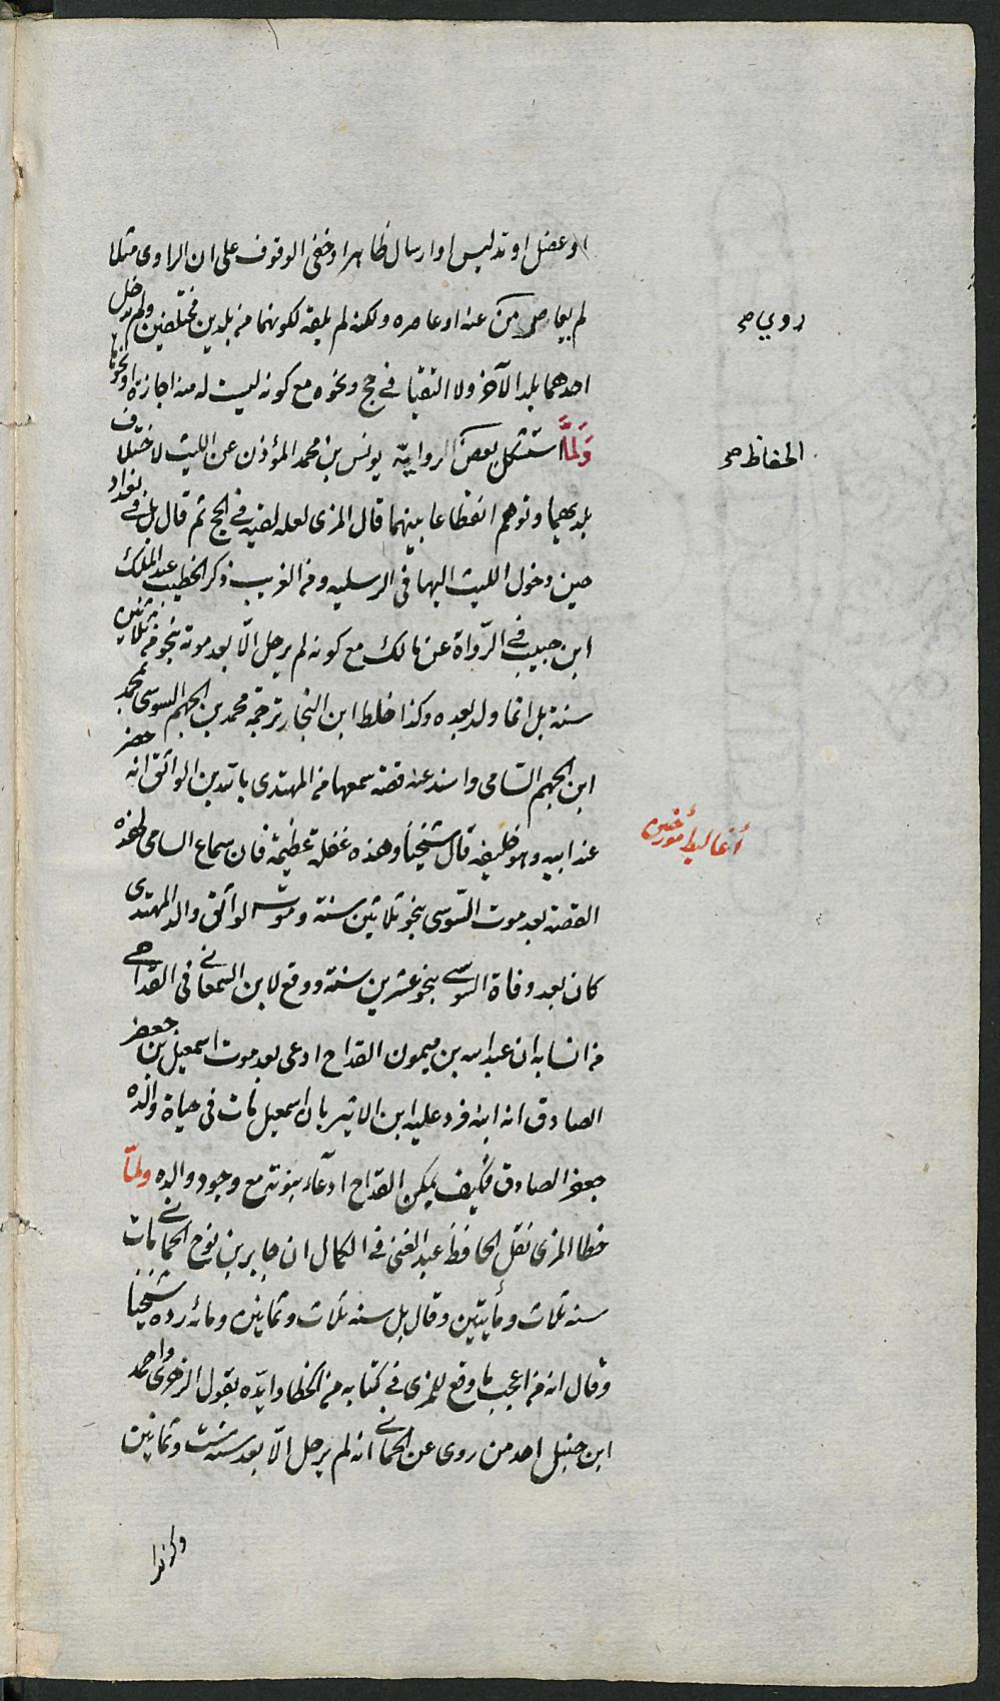 او عضل او تدليس او ارسال ظاهر او خفى الوقوف على ان الراوى مثلا
لم يعاصر من عنه او عاصره ولكنه لم يلقه لكونهما من بلدين مختلفين ولم يدخل
روى صح
احدهما بلد الآخر ولا التقيا فى حج ونحوه مع كونه ليست له منه اجازة او نحوها
وَلَمَّا استشكل بعض الرواية يونس بن محمد المؤذن عن الليث لاختلاف
الحفاظ صح
بلديهما وتوهم انقطاعا بينهما قال المزى لعله لقيه فى الحج ثم قال بل فى بغداد
حين دخول الليث اليها فى الرسليه ومن الغريب ذكر الخطيب عبد الملك
ابن حبيب فى الرّواة عن مالك مع كونه لم يرحل الّا بعد موته بنحو من ثلاثين
سنة بل انما ولد بعده وكذا خلط ابن النجار ترجمة محمد بن الجهم السوسى بمحمد
ابن الجهم السامى واسند عنه قصة سمعها من المهتدى بالله بن الواثق انه حضر
عند ابيه وهو خليفه قال شيخنا وهذه غفلة عظيمة فان سماع السامى لهذه
أغاليط مؤرخين
القصة بعد موت السّوسى بنحو ثلاثين سنة وموت الواثق والد المهتدى
كان بعد وفاة السوسى بنحو عشرين سنة ووقع لابن السمعانى فى القداحى
من انسابه ان عبد الله بن ميمون القداح ادعى بعد موت اسمعيل بن جعفر
الصادق انه ابنه فرد عليه ابن الاثير بان اسمعيل مات فى حياة والده
جعفر الصادق فكيف يمكن القداح ادّعاء بنوته مع وجود والده ولمّا
خطا المزى نقل الحافظ عبد الغنى فى الكمال ان جابر بن نوح الحمانى مات
سنه ثلاث ومأيتين وقال بل سنه ثلاث وثمانين ومائه رده شيخنا
وقال انه من اعجب ما وقع للمزى فى كتابه من الخطا وايّده بقول الزهرى واحمد
ابن حنبل احد من روى عن الحمانى انه لم يرحل الّا بعد سنه ست وثمانين
وكذا